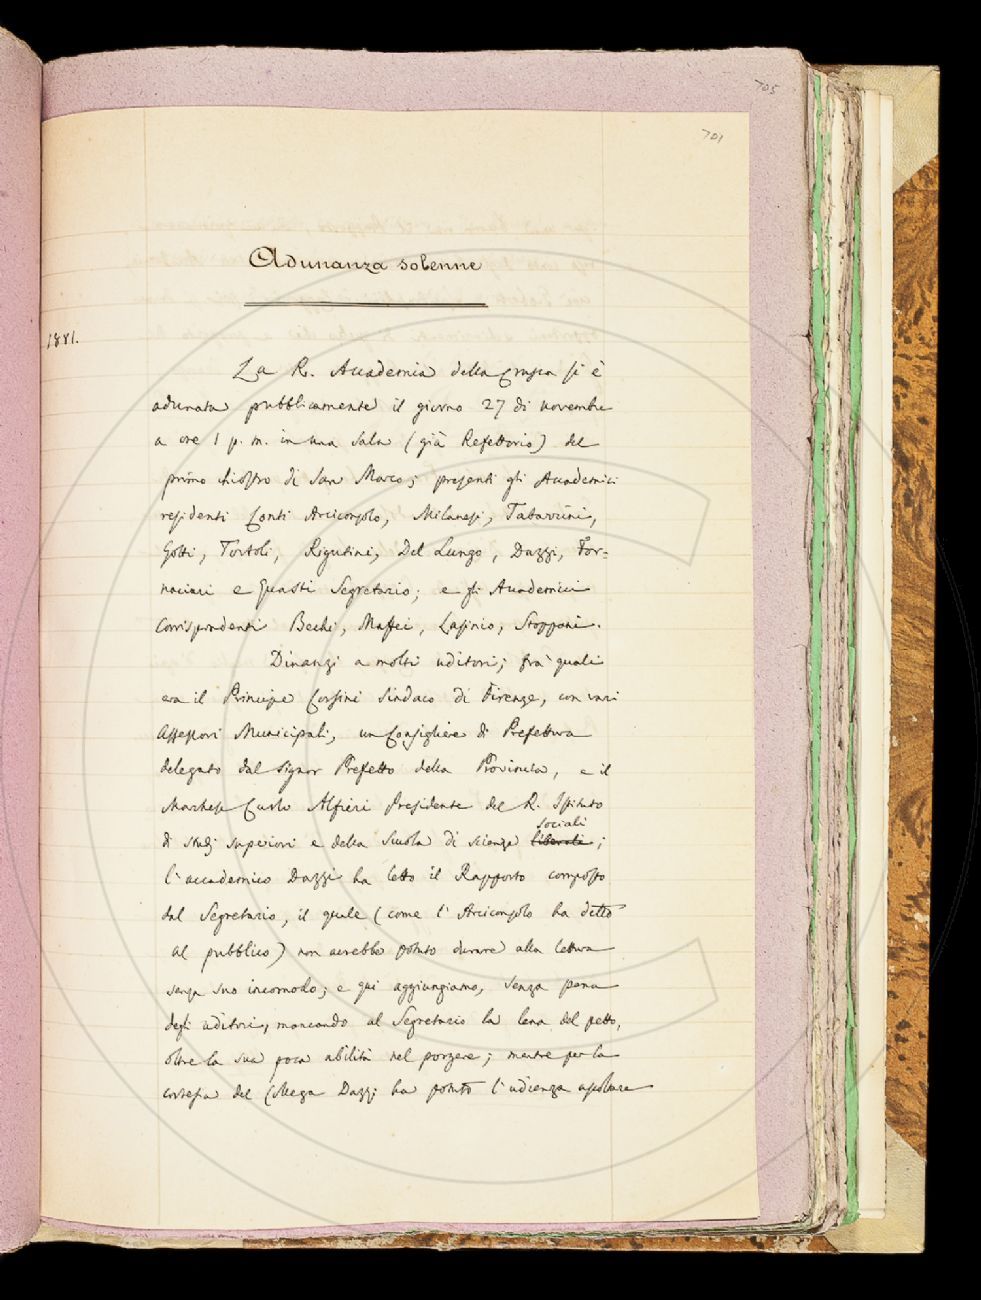 705
701
Adunanza solenne
1881.
La R. Accademia della Crusca si è
adunata pubblicamente il giorno 27 di novembre
a ore 1 p. m. in una sala (già Refettorio) del
primo chiostro di San Marco; presenti gli Accademici
residenti Conti Arciconsolo, Milanesi, Tabarrini,
Gotti, Tortoli, Rigutini, Del Lungo, Dazzi, For-
naciari e Guasti Segretario; e gli Accademici
corrispondenti Bechi, Maffei, Lasinio, Stoppani.
Dinanzi a molti uditori; fra' quali
era il Principe Corsini Sindaco di Firenze, con vari
Assessori Municipali, un Consigliere di Prefettura
delegato dal Signor Prefetto della Provincia, e il
Marchese Carlo Alfieri Presidente del R. Istituto
sociali
di studj superiori e della Scuola di scienze liberali;
l'accademico Dazzi ha letto il Rapporto composto
dal Segretario, il quale (come l'Arciconsolo ha detto
al pubblico) non avrebbe potuto durare alla lettura
senza suo incomodo; e qui aggiungiamo, senza pena
degli uditori, mancando al Segretario la lena del petto,
oltre la sua poca abilità nel porgere; mentre per la
cortesia del Collega Dazzi ha potuto l'udienza ascoltare